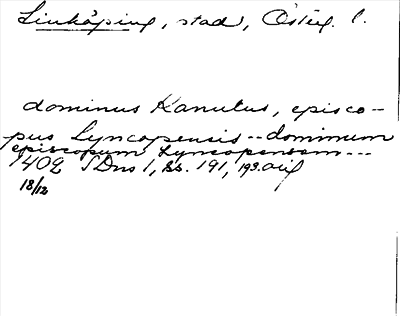 Linköping, stad, Österg. l.
dominus Kanutus, episco-
pus Lyncopensis -- dominum
episcopum Lyncopensem ---
1402 SDns 1, ss. 191, 193. orig
18/12